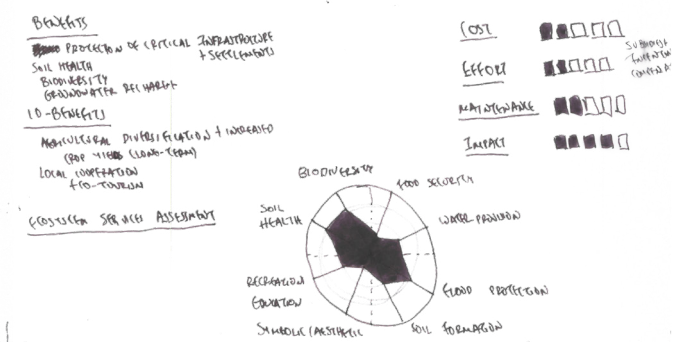 BENEFITS
PROTECTION OF CRITICAL INFRASTRUCTURE
+ SETTLEMENTS
SOIL HEALTH
BIODIVERSITY
GROUNDWATER RECHARGE
CO-BENEFITS
AGRICULTURAL DIVERSIFICATION + INCREASED
CROP YIELD (LONG-TERM)
LOCAL COOPERATION
ECO-TOURISM
ECOSYSTEM SERVICES ASSESSMENT
COST
EFFORT
MAINTENANCE
IMPACT
BIODIVERSITY
FOOD SECURITY
WATER PROVISION
FLOOD PROTECTION
SOIL FORMATION
SYMBOLIC/AESTHETIC
RECREATION
EDUCATION
SOIL
HEALTH